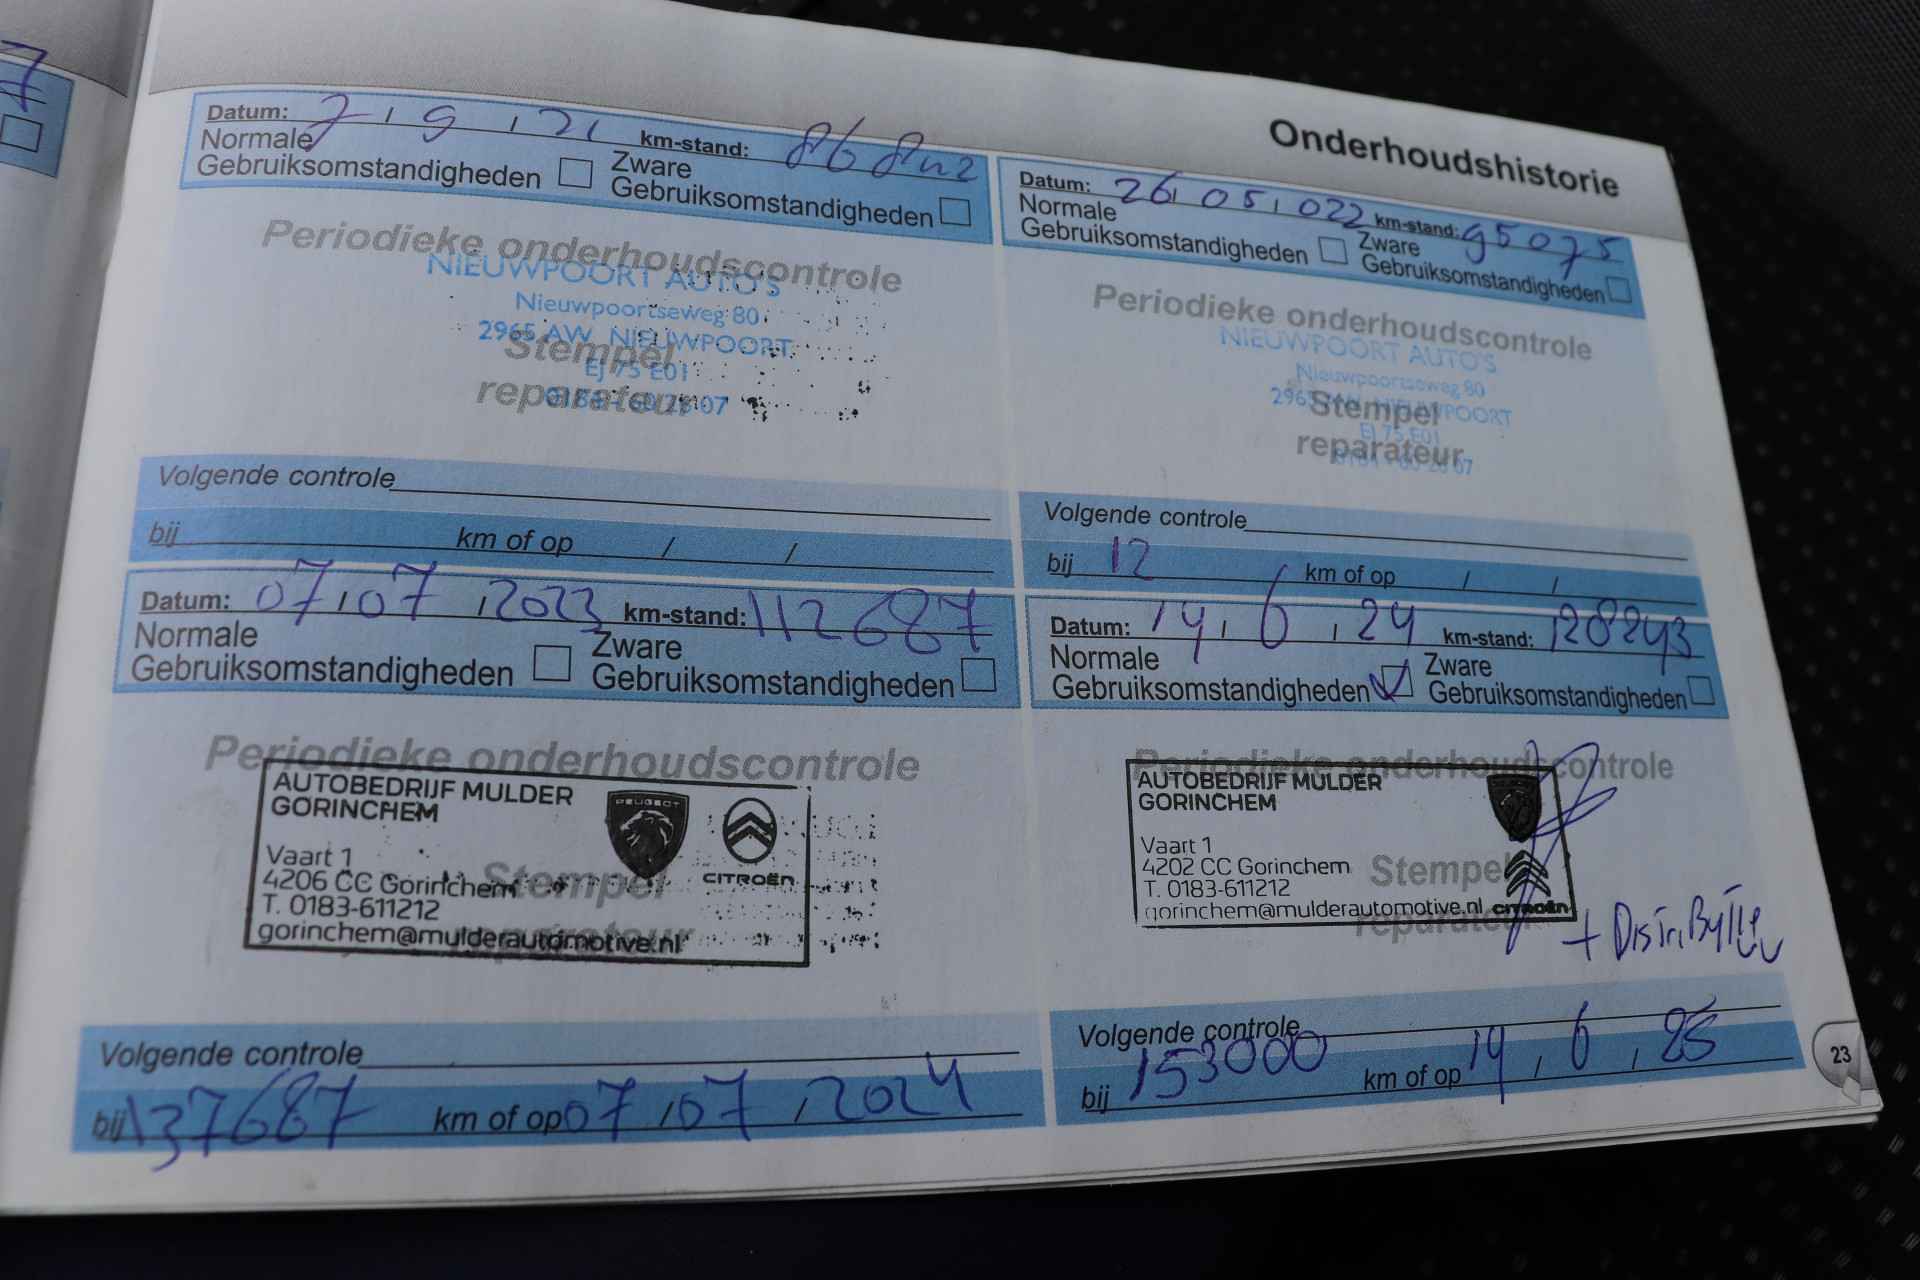 7
Onderhoudshistorie
Datum: 7 / 9 / 21 km-stand:
Normale Gebruiksomstandigheden
Zware Gebruiksomstandigheden
Periodieke onderhoudscontrole
NIEUWPOORT AUTO'S
Nieuwpoortseweg 80
2965 AW NIEUWPOORT
Stempel
EJ 75 E01
reparateur
Volgende controle
bij km of op / /
Datum: 26 / 05 / 022 km-stand: 95075
Normale Gebruiksomstandigheden
Zware Gebruiksomstandigheden
Periodieke onderhoudscontrole
NIEUWPOORT AUTO'S
Nieuwpoortseweg 80
NIEUWPOORT
Stempel
EJ 75 E01
reparateur
Volgende controle
bij 12 km of op / /
Datum: 07 / 07 / 2023 km-stand: 112687
Normale Gebruiksomstandigheden
Zware Gebruiksomstandigheden
Periodieke onderhoudscontrole
AUTOBEDRIJF MULDER
GORINCHEM
PEUGEOT
CITROËN
Vaart 1
4206 CC Gorinchem
Stempel
T. 0183-611212
gorinchem@mulderautomotive.nl
reparateur
Volgende controle
bij 137687 km of op 07 / 07 / 2024
Datum: 14 / 6 / 24 km-stand: 128243
Normale Gebruiksomstandigheden
Zware Gebruiksomstandigheden
Periodieke onderhoudscontrole
AUTOBEDRIJF MULDER
GORINCHEM
Vaart 1
4202 CC Gorinchem
Stempel
T. 0183-611212
gorinchem@mulderautomotive.nl
CITROËN
reparateur
Volgende controle
bij 153000 km of op 14 / 6 / 25
23